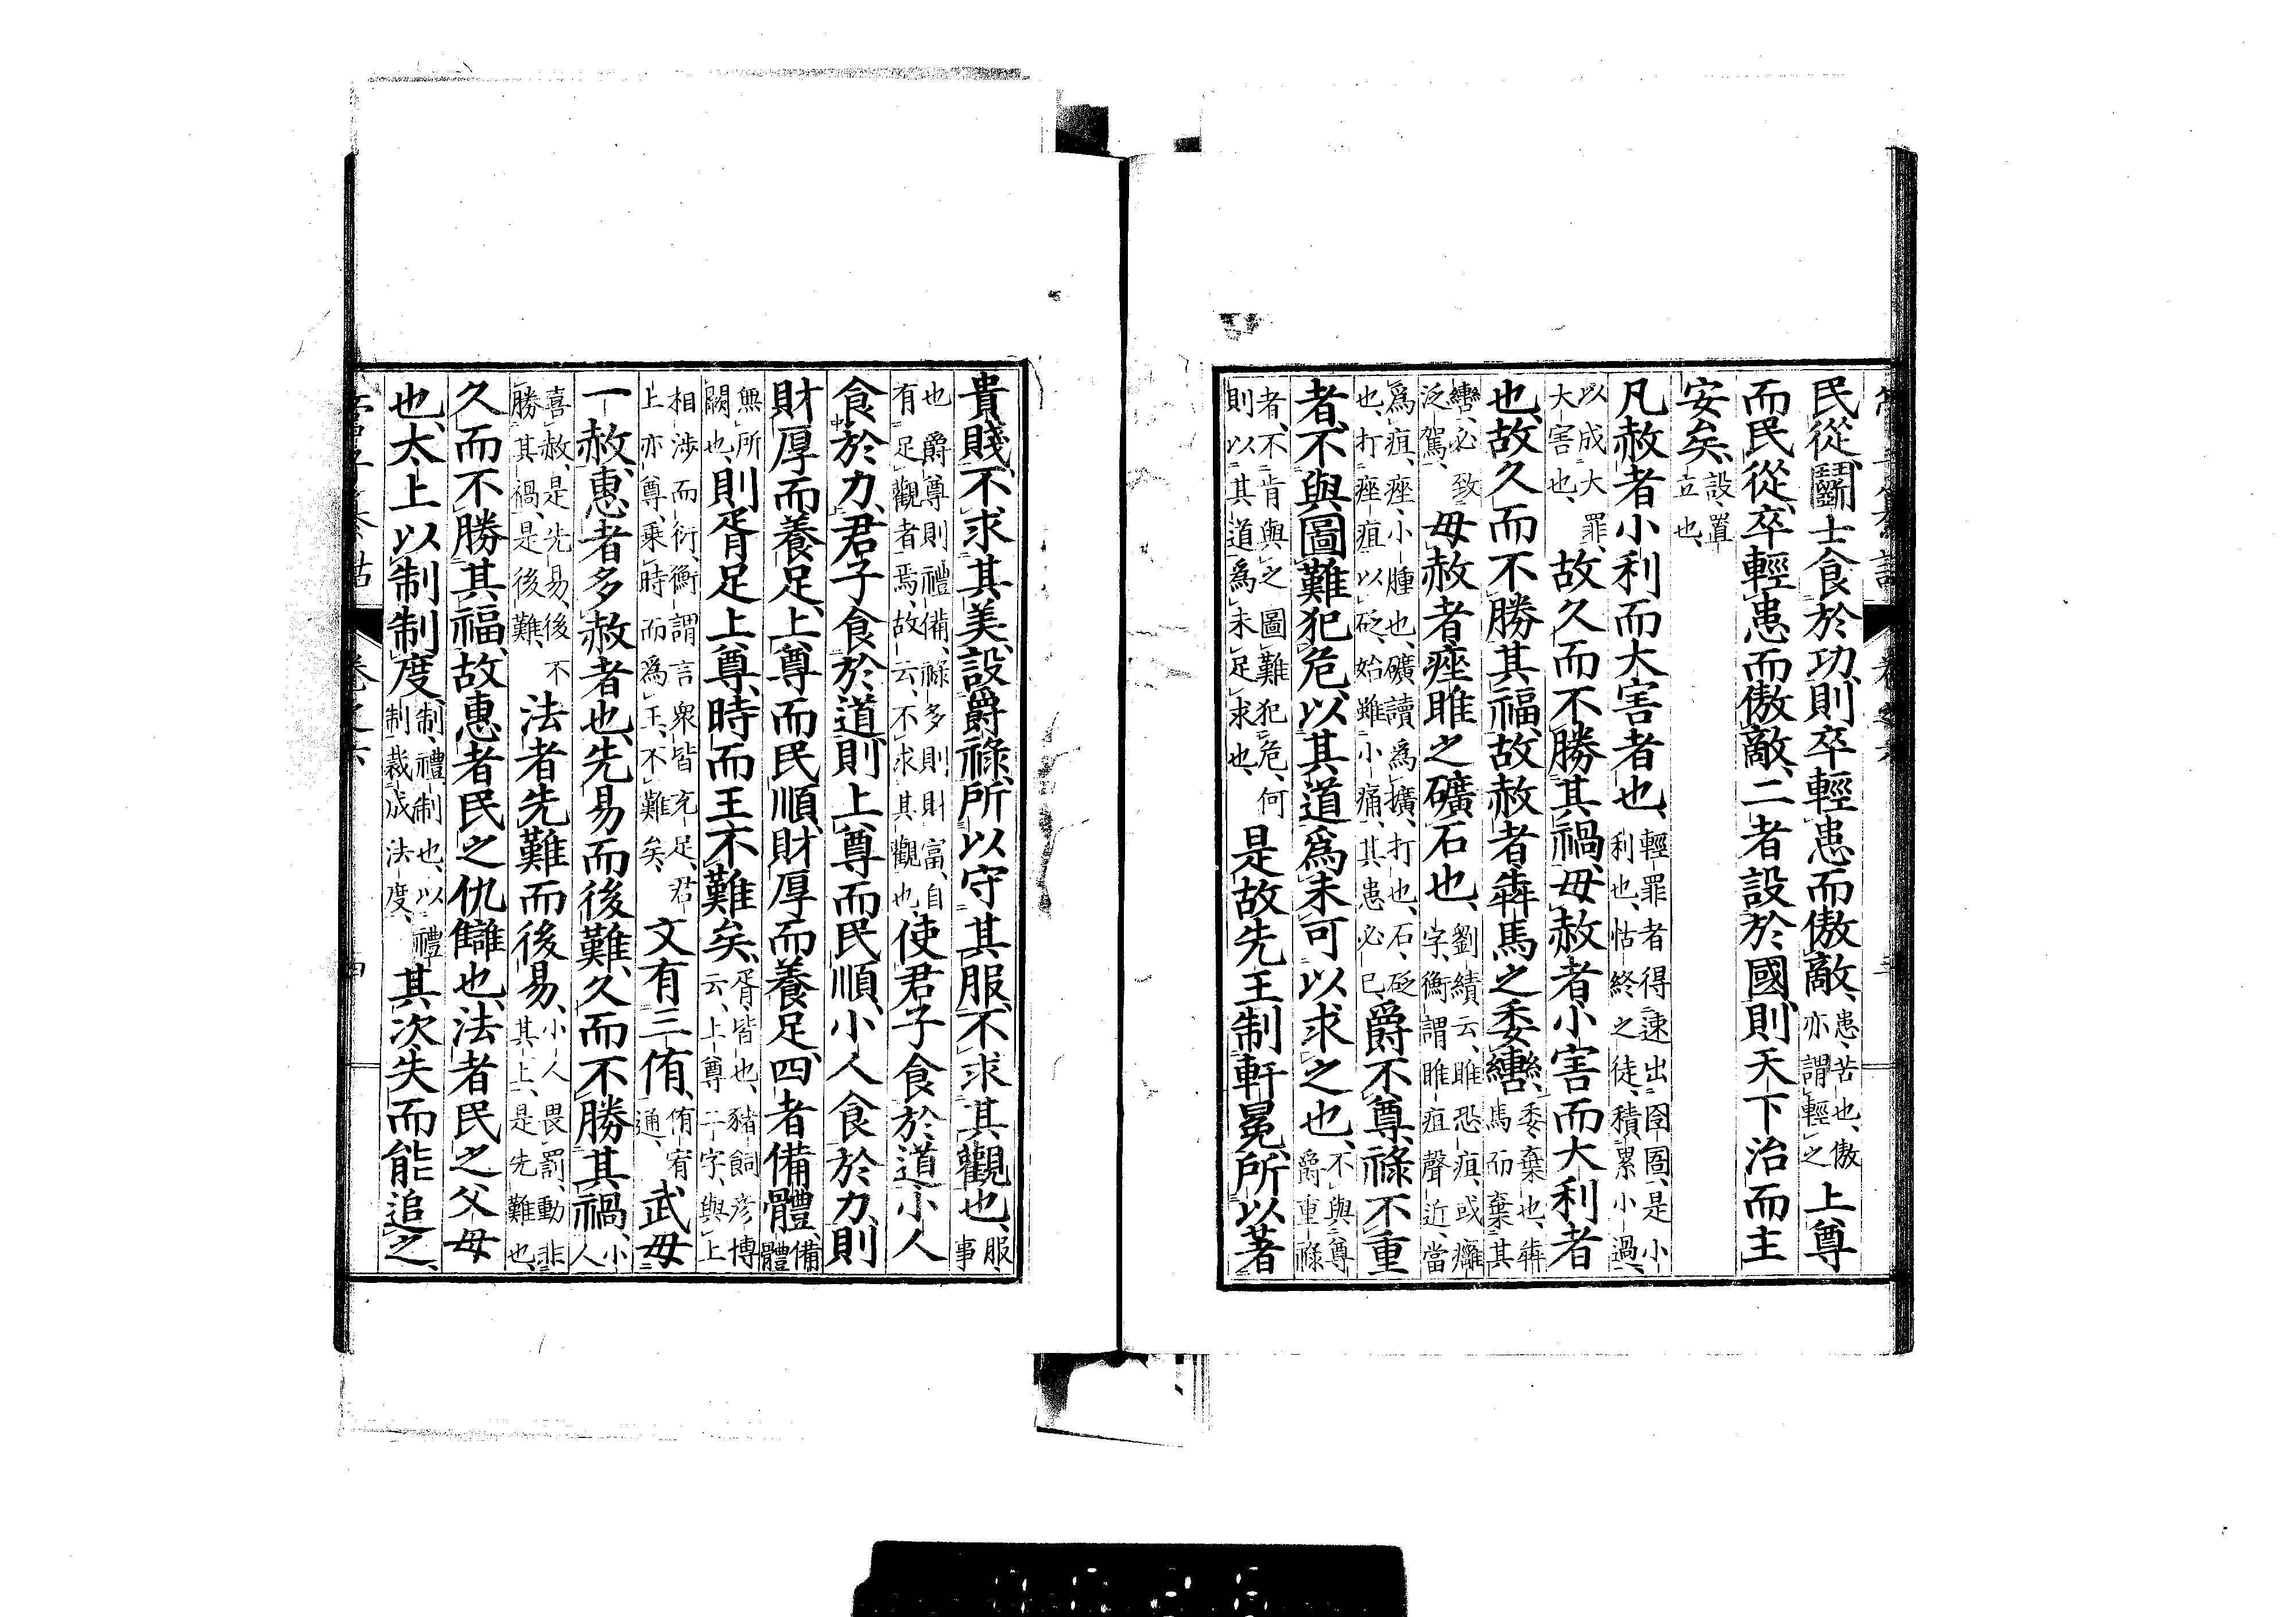 民從、鬭士食於功、則卒輕患而傲敵、患、苦也、傲亦謂輕之上尊
而民從、卒輕患而傲敵、二者設於國、則天下治而主
安矣、設、置立也、
凡赦者小利而大害者也、輕罪者得逮出囹圄、是小利也、怙終之徒、積累小過、
以成大罪、大害也、故久而不勝其禍、毋赦者小害而大利者
也、故久而不勝其福、故赦者犇馬之委轡、委棄也、犇馬而棄其
轡、必致泛駕、毋赦者痤睢之礦石也、劉績云、睢恐疽、或癰字、衡謂睢疽聲近、當
爲疽、痤、小腫也、礦讀爲擴、打也、石、砭也、打痤疽以砭、始雖小痛、其患必已、爵不尊祿不重
者、不與圖難犯危、以其道爲未可以求之也、不與尊爵重祿
者、不肯與之圖難犯危、何則以其道爲未足求也、是故先王制軒冕、所以著
貴賤、不求其美、設爵祿、所以守其服、不求其觀也、服、事
也、爵尊則禮備、祿多則財富、自有足觀者焉、故云、不求其觀也、使君子食於道小人
食於力、君子食於道、則上尊而民順、小人食於力、則
財厚而養足、上尊而民順、財厚而養足、四者備體、備體
無所闕也、則胥足上尊、時而王不難矣、胥、皆也、豬飼彥博云、上尊二字、與上
相涉而衍、衡謂言衆皆充足、君上亦尊、乘時而爲王、不難矣、文有三侑、侑宥通、武毋
一赦、惠者多赦者也、先易而後難、久而不勝其禍、小人
喜赦、是先易、後不勝其禍、是後難、法者先難而後易、小人畏罰、動非其上、是先難也、
久而不勝其福、故惠者民之仇讎也、法者民之父母
也、太上以制制度、制、禮制也、以禮制裁成法度、其次失而能追之、
卷之六